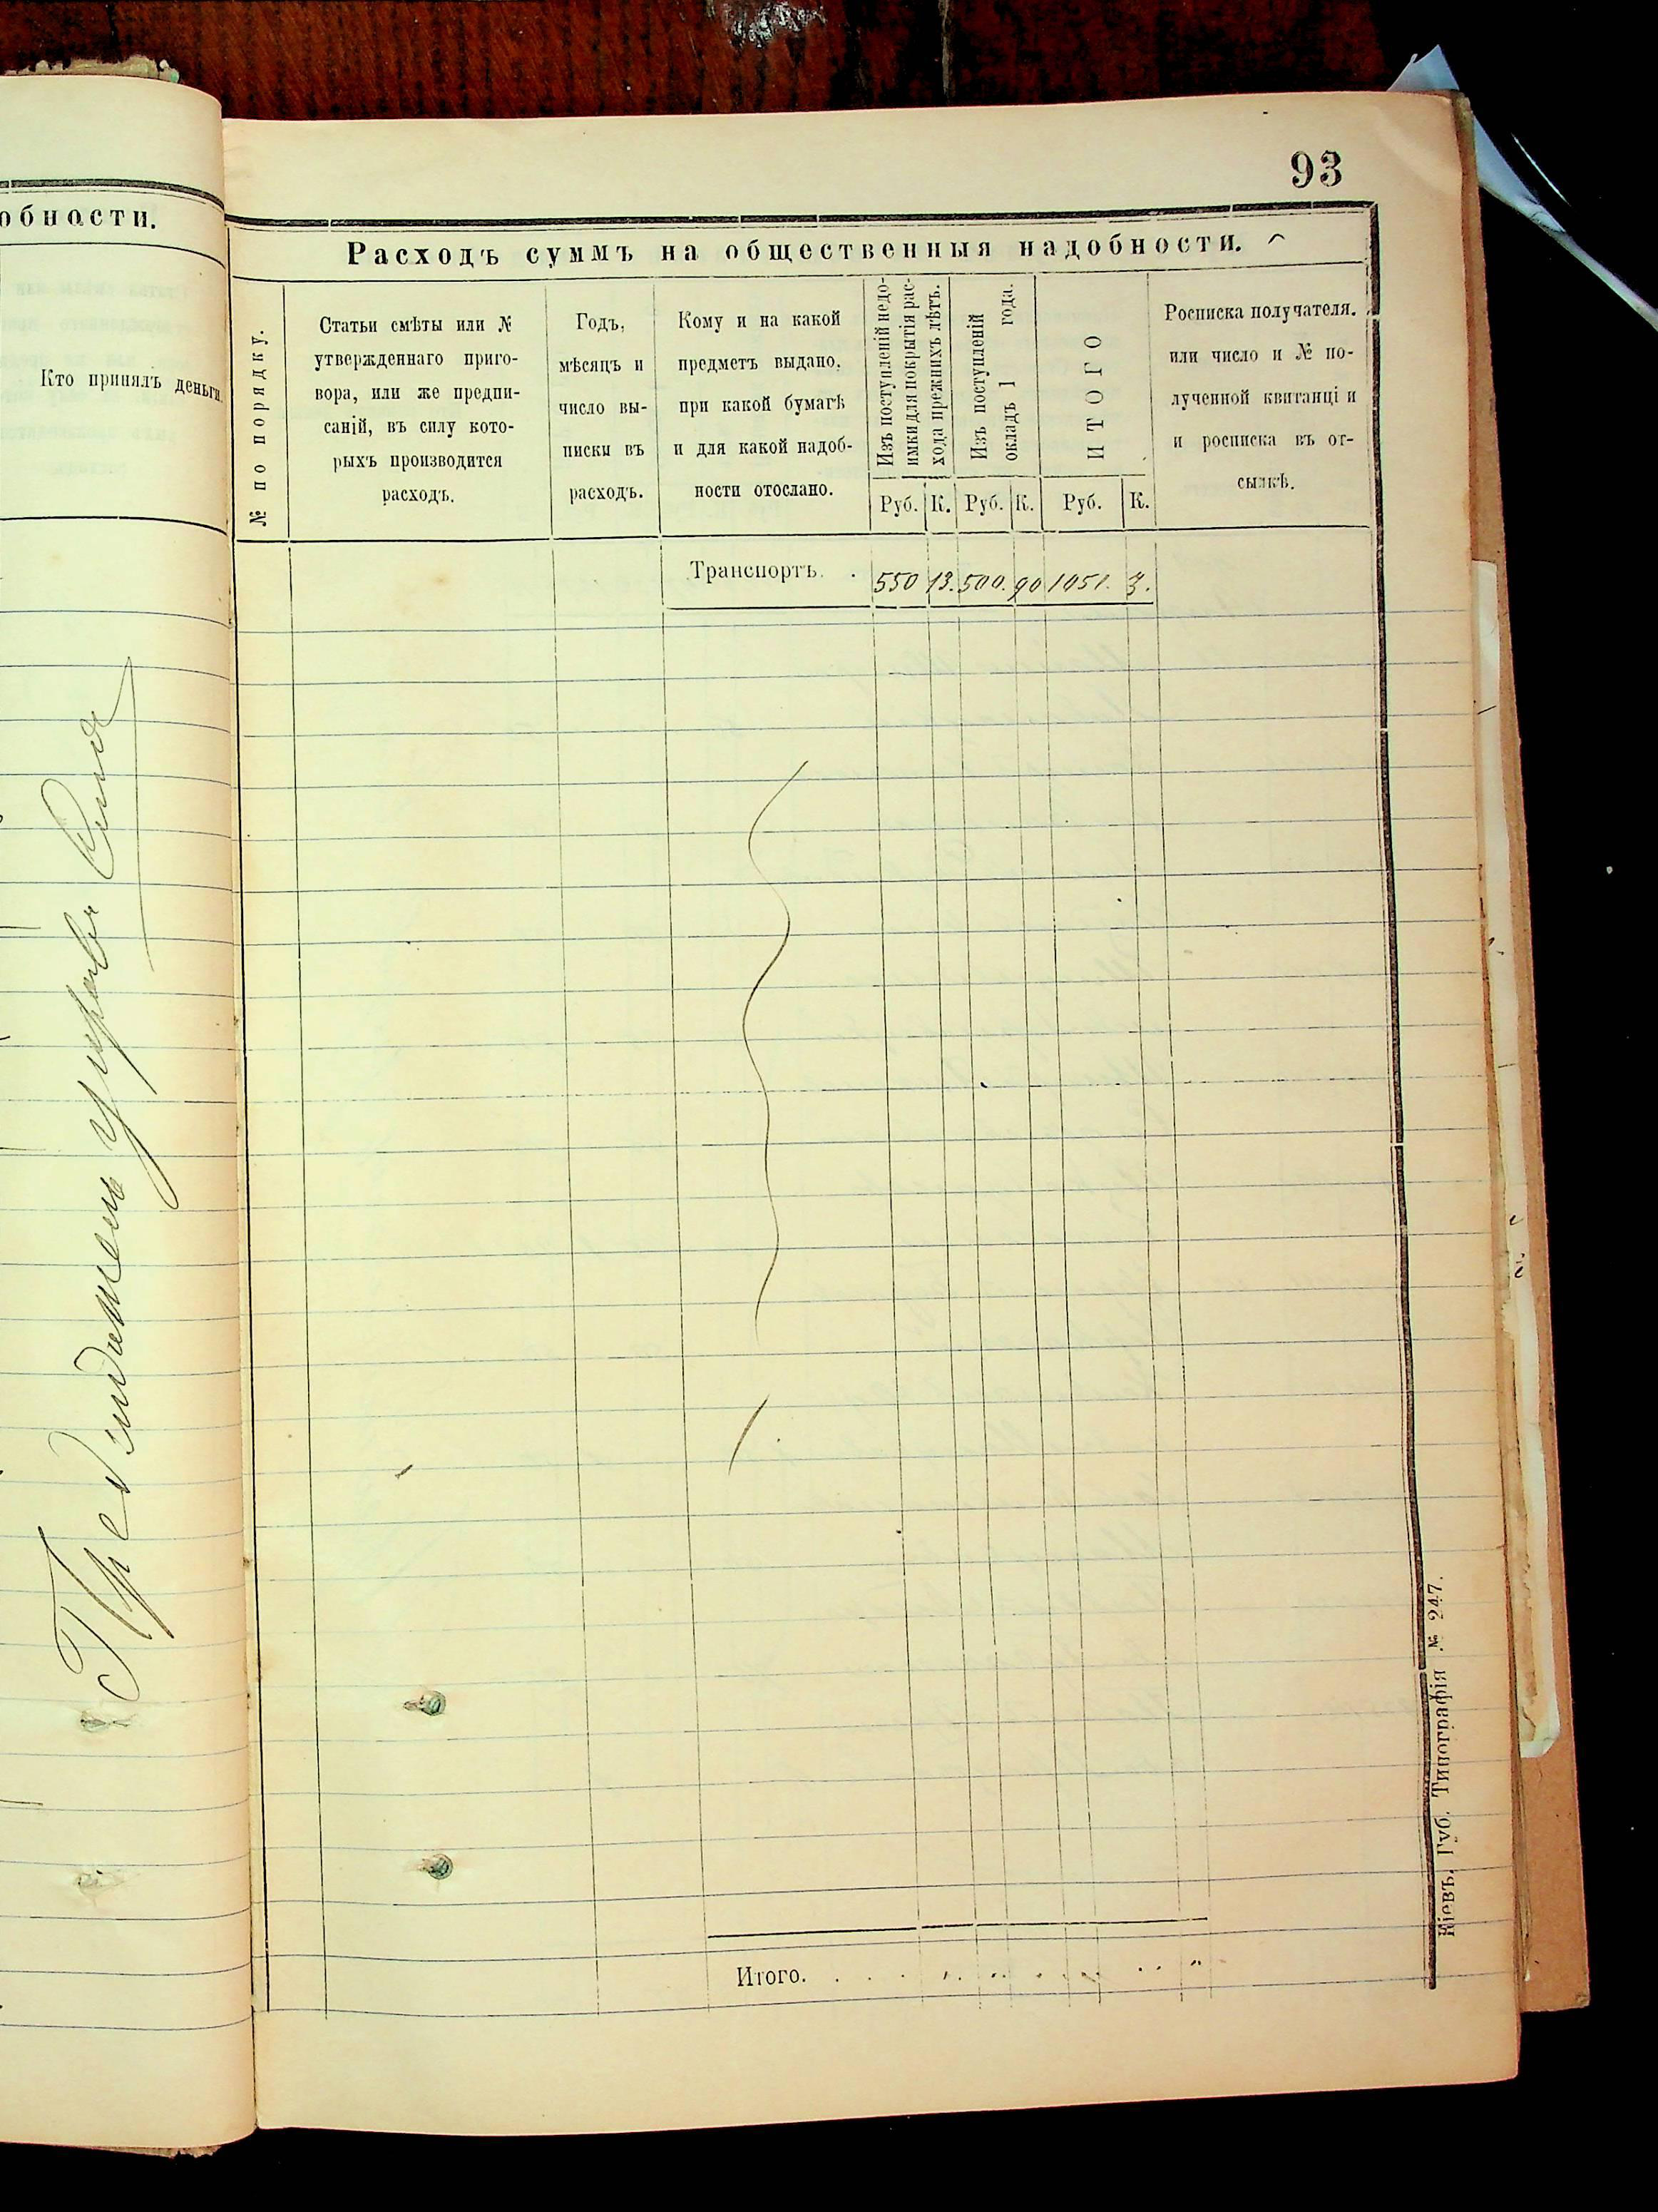 93
обности.
Кто принялъ деньги.
Расходъ суммъ на общественныя надобности.
№ по порядку.
Статьи смѣты или №
утвержденнаго приго-
вора, или же предпи-
саній, въ силу кото-
рыхъ производится
расходъ.
Годъ,
мѣсяцъ и
число вы-
писки въ
расходъ.
Кому и на какой
предметъ выдано,
при какой бумагѣ
и для какой надоб-
ности отослано.
Изъ поступленій недо-
имки для покрытія рас-
хода прежнихъ лѣтъ.
Изъ поступленій
окладъ 1 года.
ИТОГО
Руб. К. Руб. К. Руб. К.
Росписка получателя.
или число и № по-
лученной квитанці и
и росписка въ от-
сылкѣ.
Транспортъ. . 550 13. 500. 90 1051. 3.
Итого. . . . .
Кіевъ, Губ. Типографія № 247.